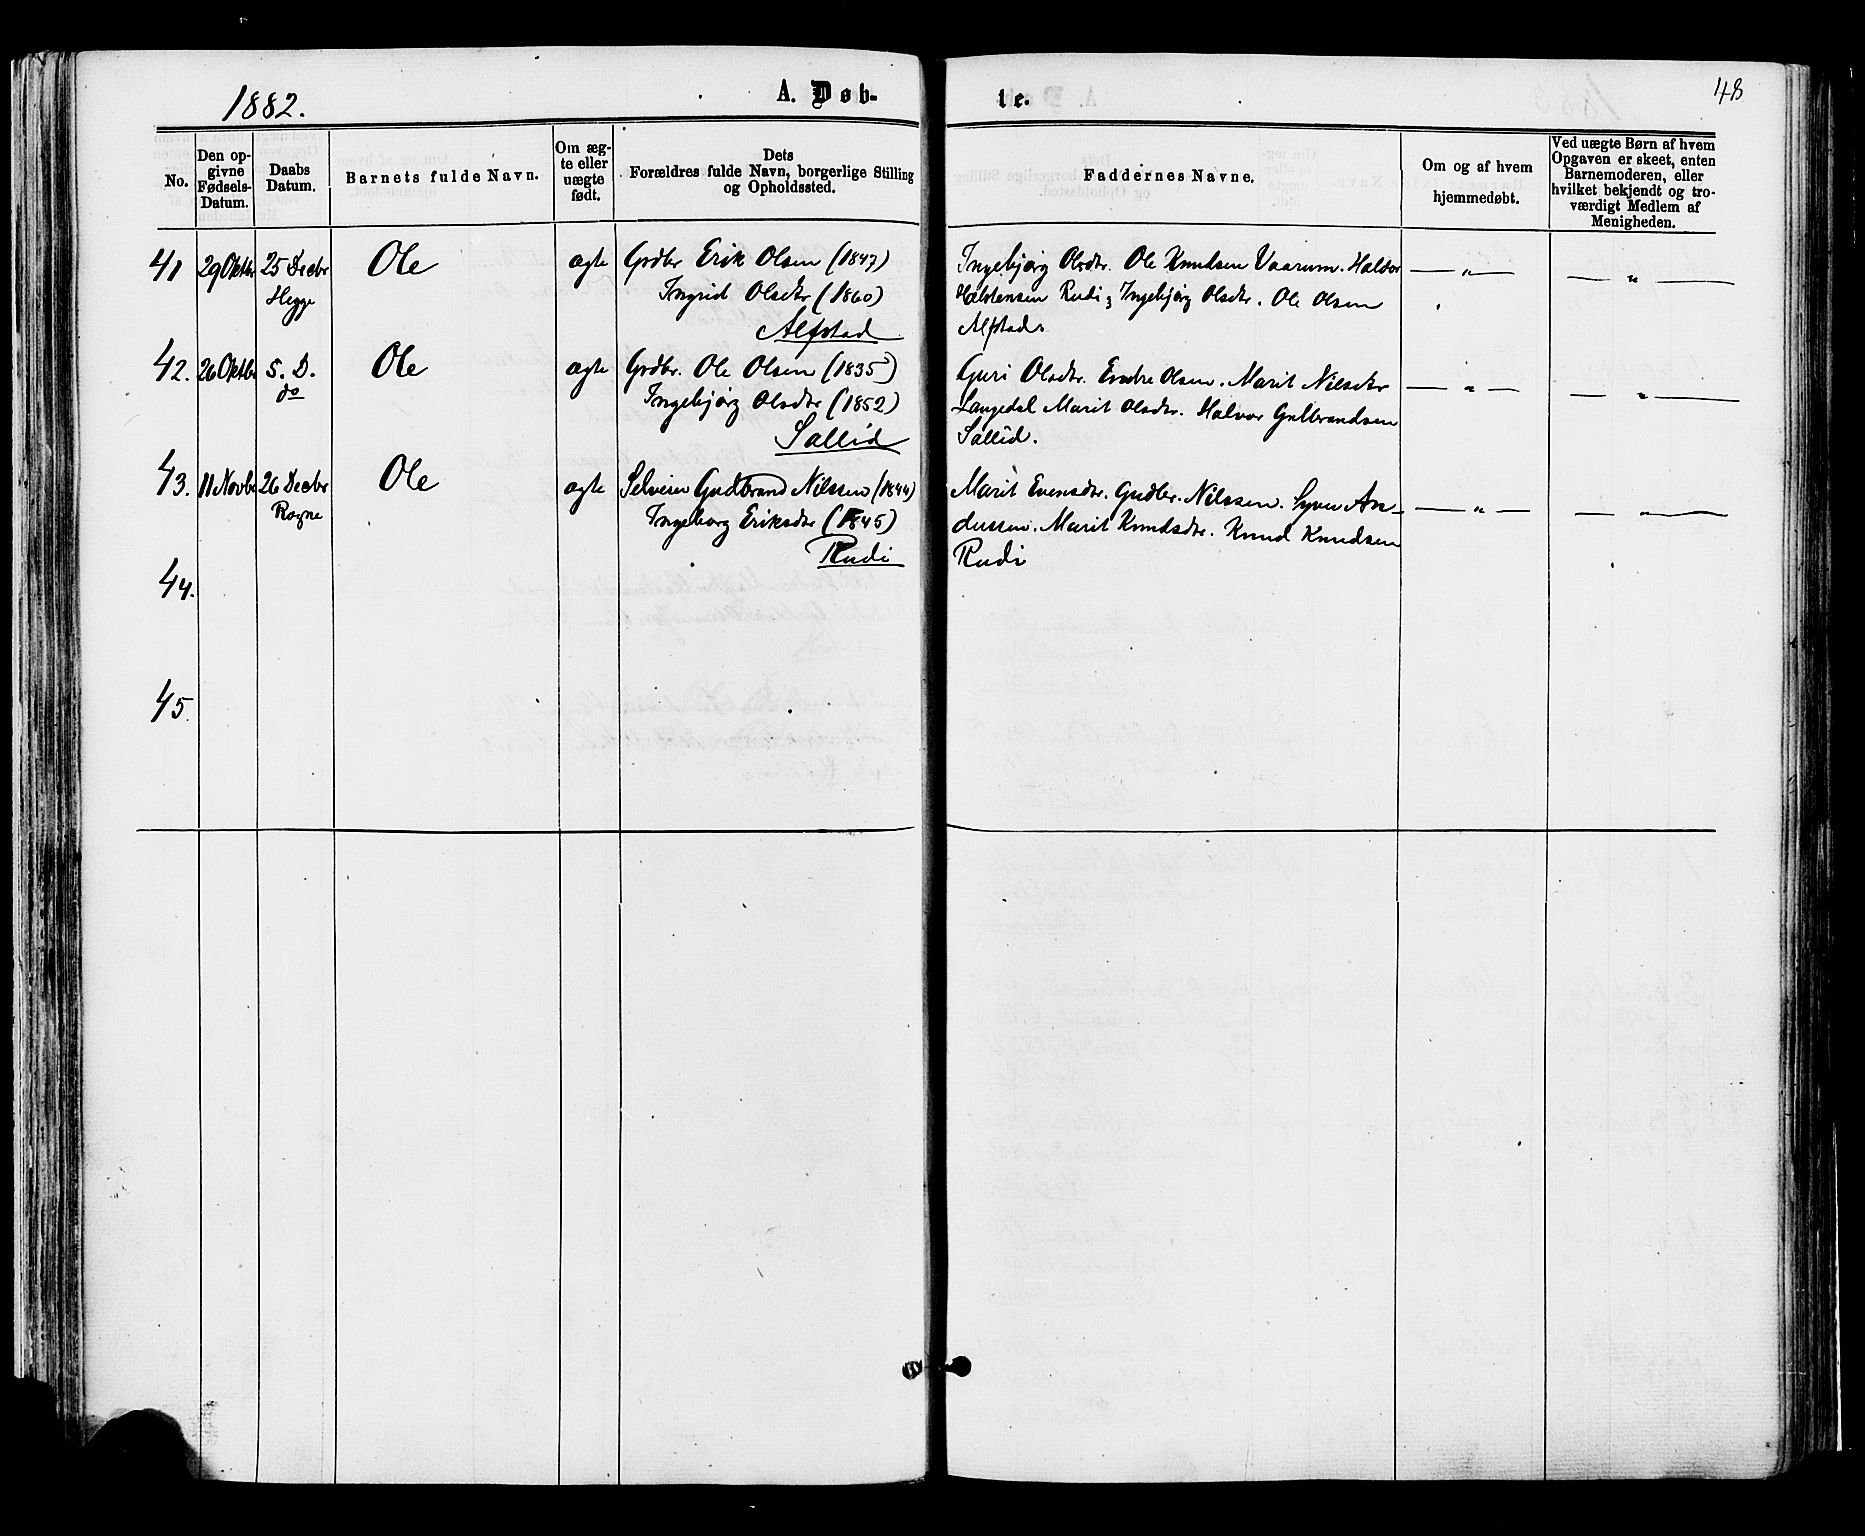 1882.
A. Døb-
te.
48
No.
Den op-
givne
Fødsels-
Datum.
Daabs
Datum.
Barnets fulde Navn.
Om æg-
te eller
uægte
født.
Dets
Forældres fulde Navn, borgerlige Stilling
og Opholdssted.
Faddernes Navne.
Om og af hvem
hjemmedøbt.
Ved uægte Børn af hvem
Opgaven er skeet, enten
Barnemoderen, eller
hvilket bekjendt og tro-
værdigt Medlem af
Menigheden.
41 29 Oktbr 25 Decbr Ole ægte Grdbr Erik Olsen (1847) Ingebjørg Olsdtr. Ole Knudsen Vaarum. Halvor — „ — — „ —
Hegge Ingrid Olsdtr (1860) Halstensen Rudi; Ingebjørg Olsdtr. Ole Olsen
Alfstad Alfstad.
42. 26 Oktbr S. D. Ole ægte Grdbr. Ole Olsen (1835) Guri Olsdtr. Endre Olsen. Marit Nilsdtr — „ — — „ —
do Ingebjørg Olsdtr (1852) Langedal Marit Olsdtr. Halvor Gulbrandsen
Sallid Sallid.
43. 11 Novbr 26 Decbr Ole ægte Selveier Gudbrand Nilssen (1844) Marit Evensdtr. Gudbr. Nilssen. Syver An- — „ — — „ —
Rogne Ingeborg Eriksdtr (1845) derssen. Marit Knudsdtr. Knud Knudsen
Rudi Rudi
44.
45.